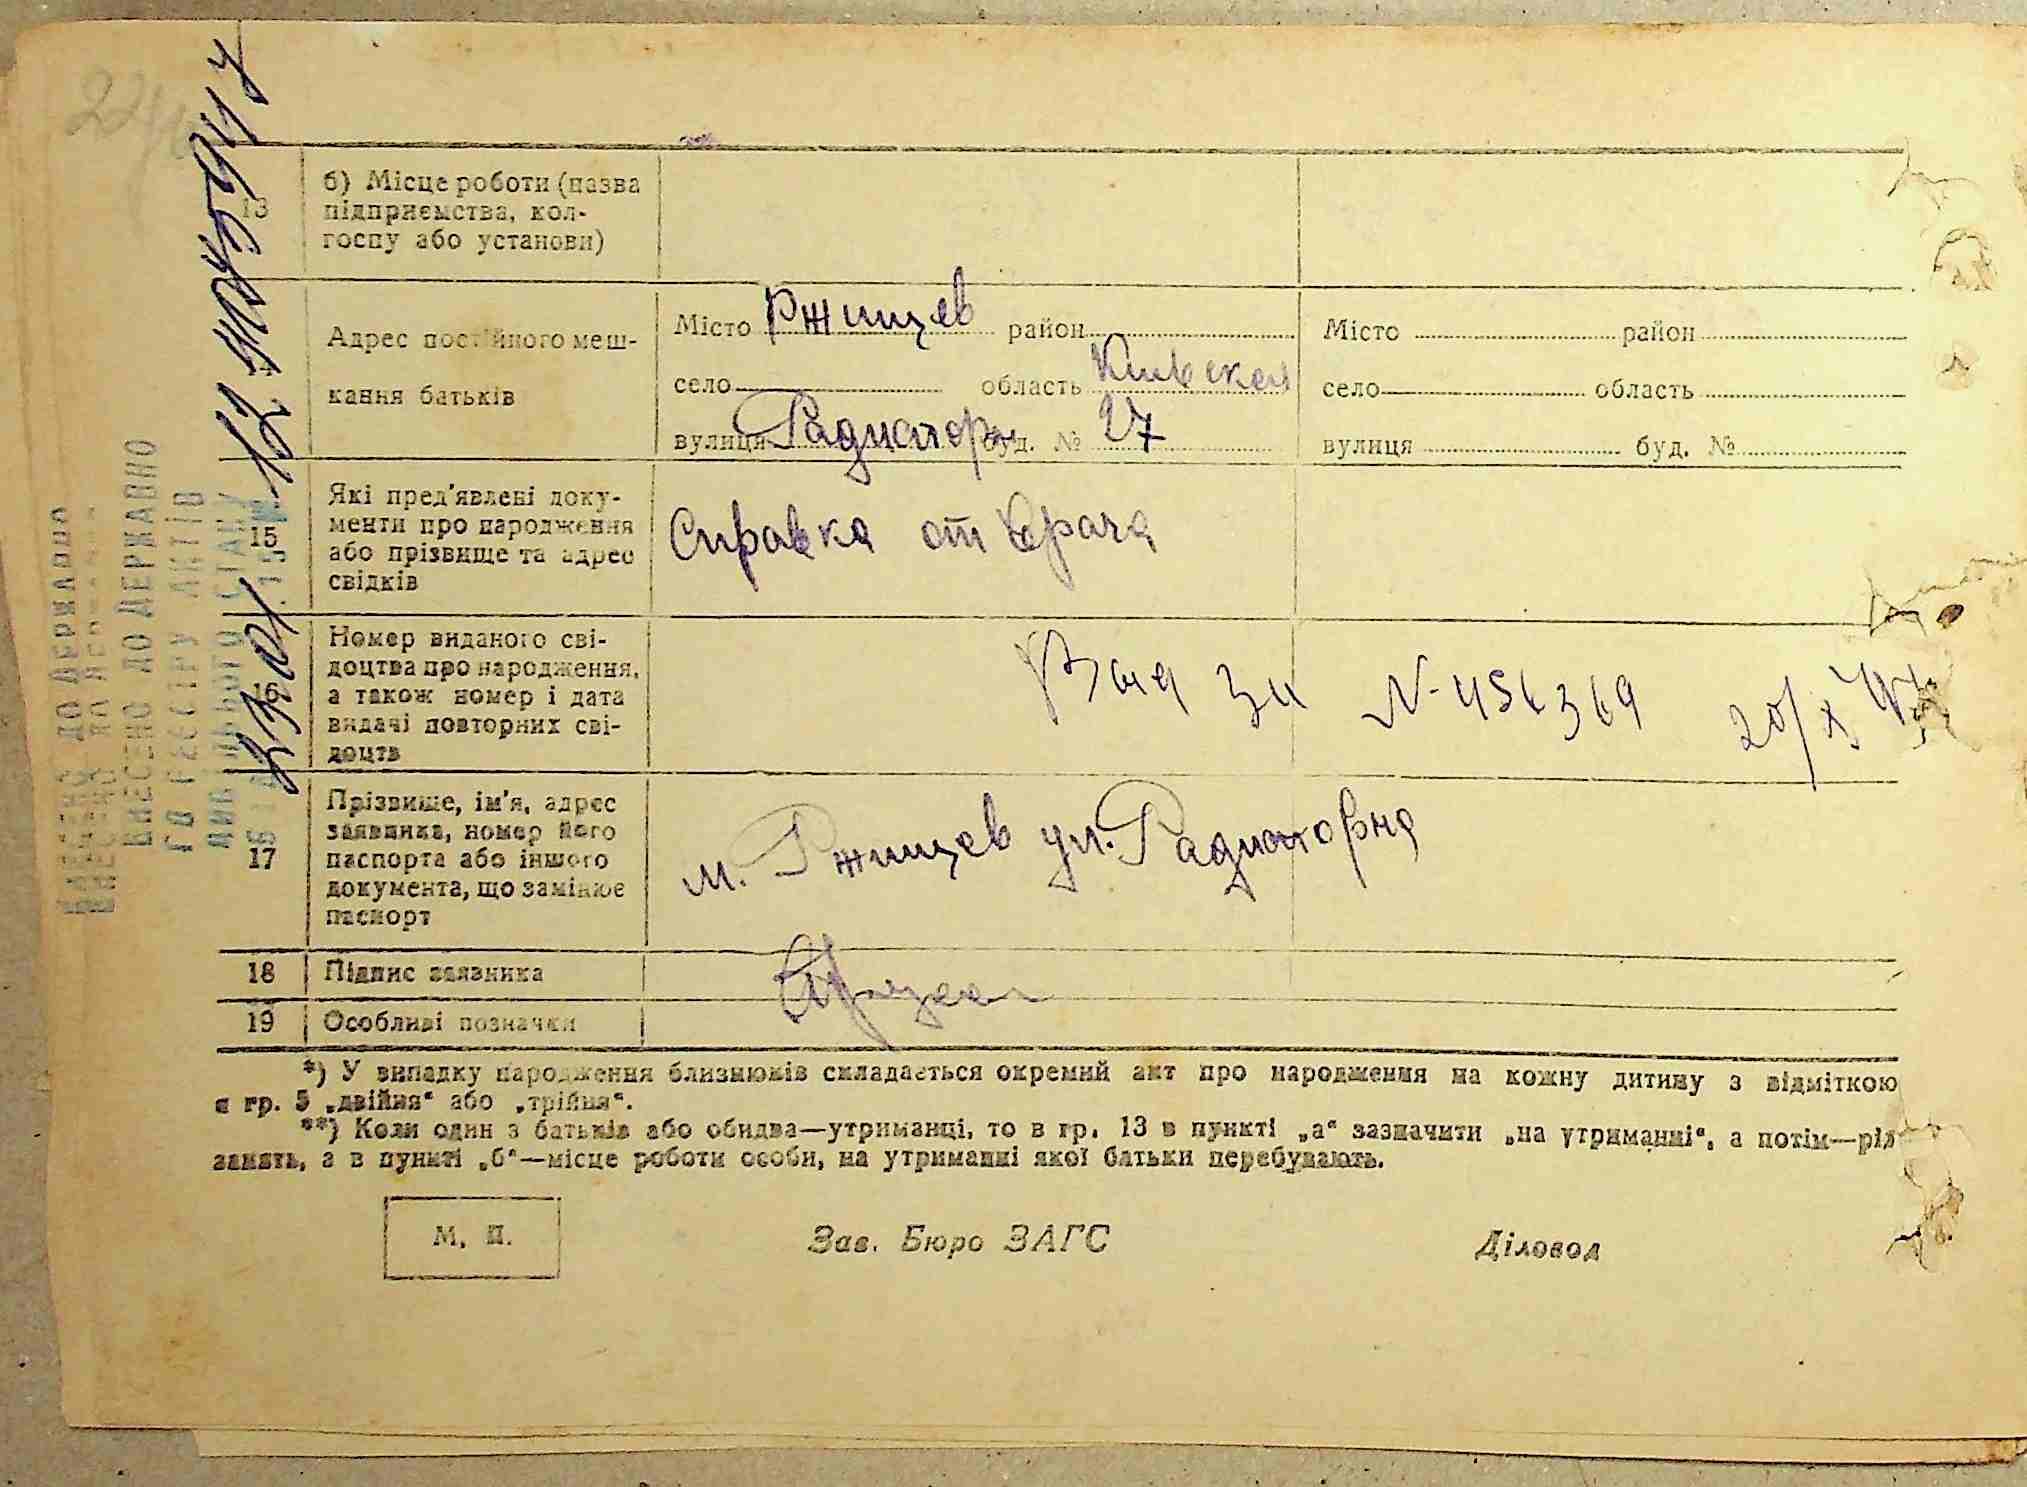 13
б) Місце роботи (назва
підприємства, кол-
госпу або установи)
Адрес постійного меш-
кання батьків
Місто Ржищев район
село область Киевская
вулиця Радиаторн буд. № 27
Місто район
село область
вулиця буд. №
15
Які пред'явлені доку-
менти про народження
або прізвище та адрес
свідків
Справка от врача
16
Номер виданого сві-
доцтва про народження,
а також номер і дата
видачі повторних сві-
доцтв
№ 456369 20/X
17
Прізвище, ім'я, адрес
заявника, номер його
паспорта або іншого
документа, що замінює
паспорт
м. Ржищев ул. Радиаторна
18 Підпис заявника
19 Особливі позначки
*) У випадку народження близнюків складається окремий акт про народження на кожну дитину з відміткою
в гр. 5 „двійня“ або „трійня“.
**) Коли один з батьків або обидва—утриманці, то в гр. 13 в пункті „а“ зазначити „на утриманні“, а потім—рід
занять, а в пункті „б“—місце роботи особи, на утриманні якої батьки перебувають.
М. П.
Зав. Бюро ЗАГС
Діловод
ВНЕСЕНО ДО ДЕРЖАВНО
ГО РЕЄСТРУ АКТІВ